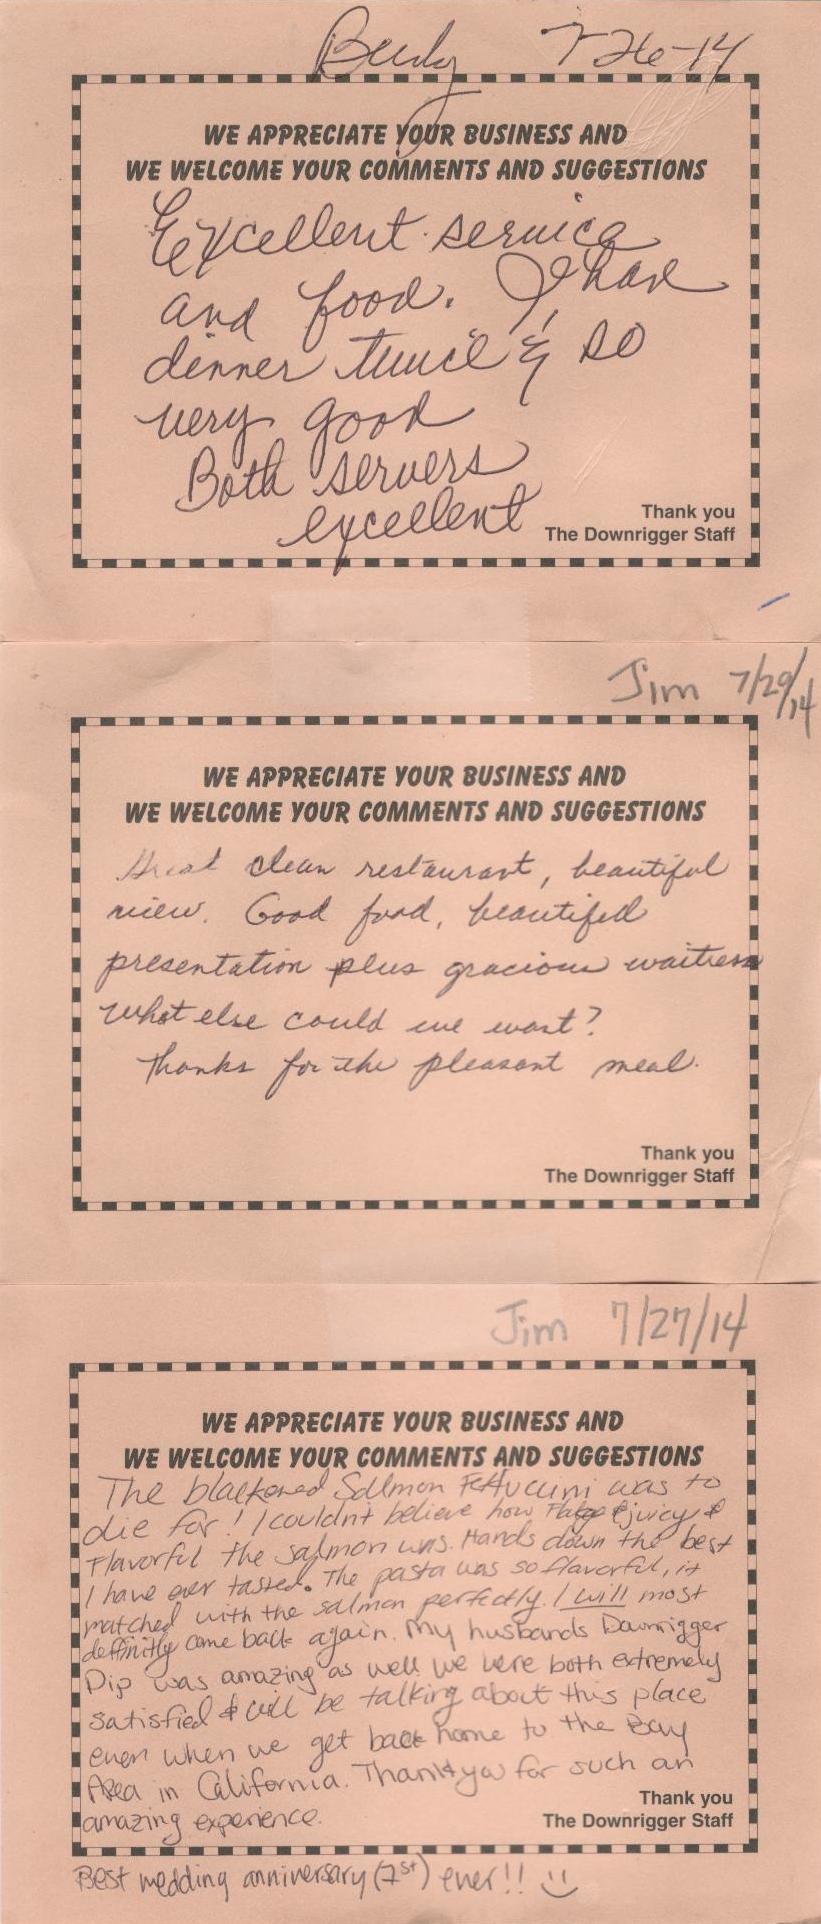 7-26-14
WE APPRECIATE YOUR BUSINESS AND
WE WELCOME YOUR COMMENTS AND SUGGESTIONS
Excellent service
and food. I had
dinner twice & so
very good
Both servers
excellent
Thank you
The Downrigger Staff
Jim 7/29/14
WE APPRECIATE YOUR BUSINESS AND
WE WELCOME YOUR COMMENTS AND SUGGESTIONS
Great clean restaurant, beautiful
view. Good food, beautiful
presentation plus gracious waitress
What else could we want?
Thanks for the pleasant meal.
Thank you
The Downrigger Staff
Jim 7/27/14
WE APPRECIATE YOUR BUSINESS AND
WE WELCOME YOUR COMMENTS AND SUGGESTIONS
The blackened Salmon Fettuccini was to
die for! I couldn't believe how juicy &
Flavorful the salmon was. Hands down the best
I have ever tasted. The pasta was so flavorful, it
matched with the salmon perfectly. I will most
deffinitly come back again. My husbands Downrigger
Dip was amazing as well we were both extremely
satisfied & will be talking about this place
even when we get back home to the Bay
Area in California. Thank you for such an
amazing experience.
Thank you
The Downrigger Staff
Best wedding anniversary (1st) ever!!